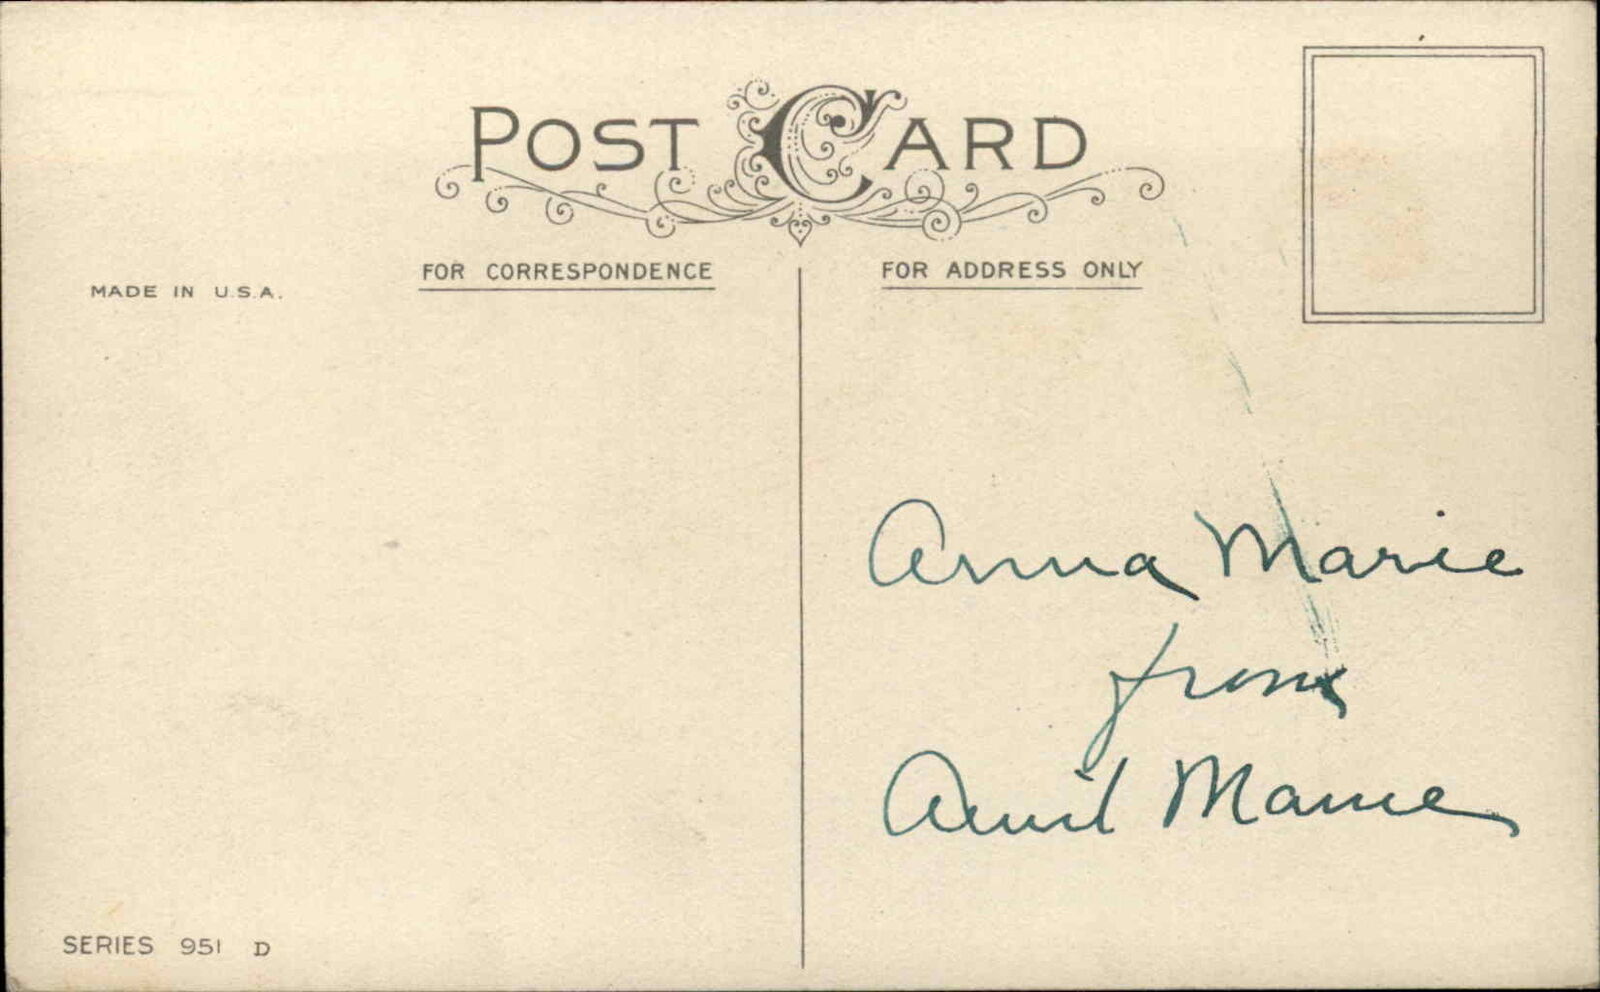 POST CARD
FOR CORRESPONDENCE
FOR ADDRESS ONLY
MADE IN U.S.A.
Anna Marie
from
Aunt Mame
SERIES 951 D